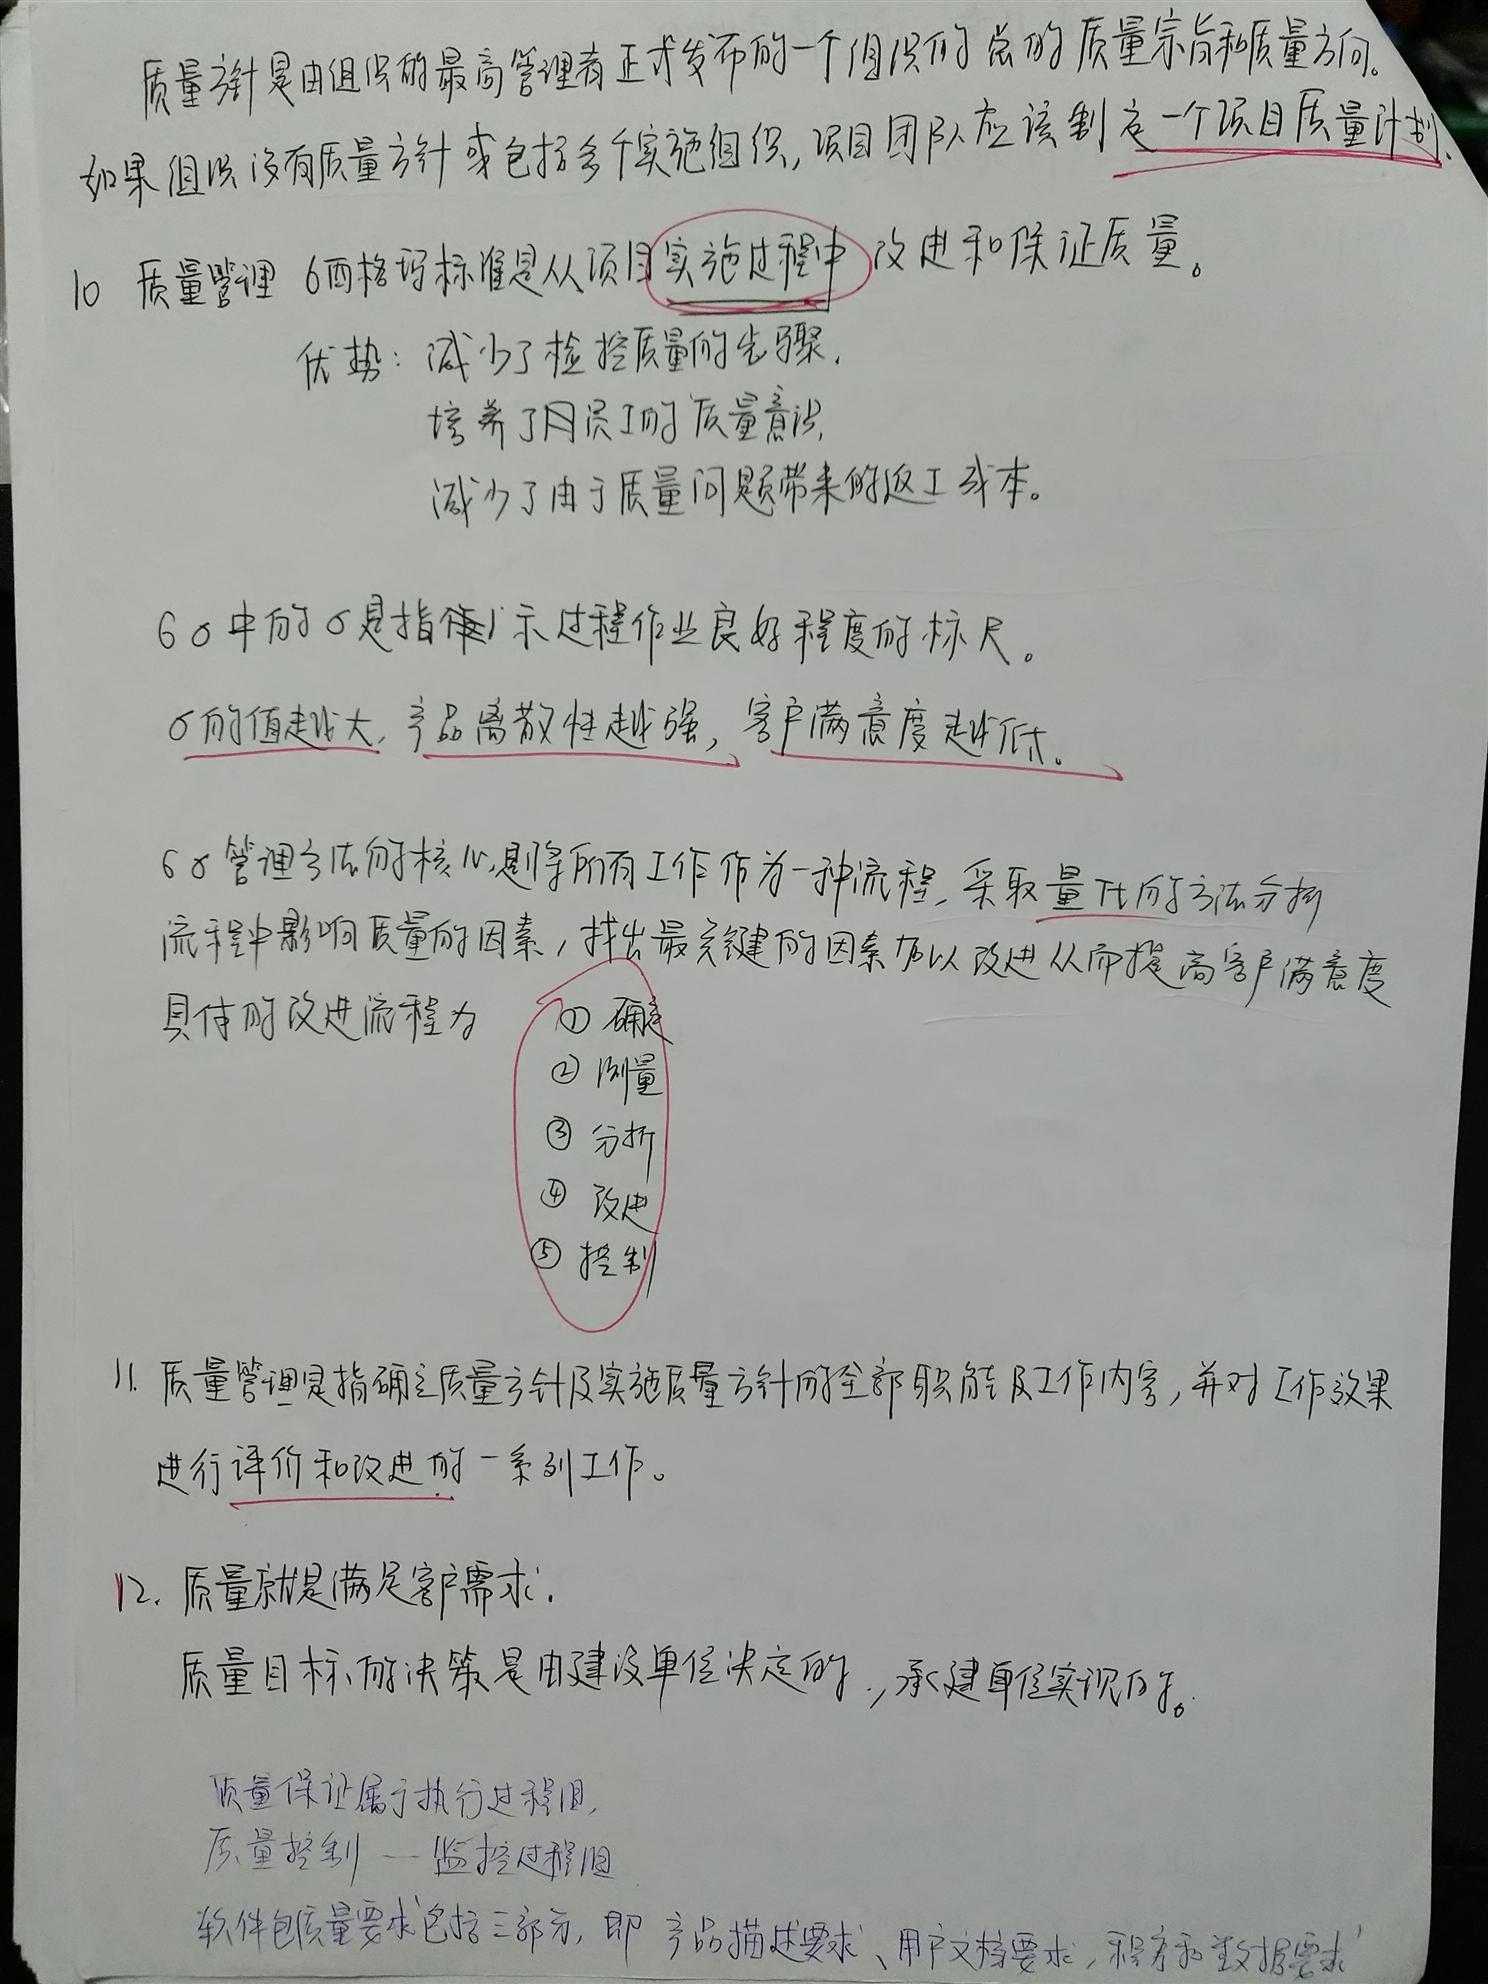 质量方针是由组织的最高管理者正式发布的一个组织的总的质量宗旨和质量方向。
如果组织没有质量方针或包括多个实施组织,项目团队应该制定一个项目质量计划.
10 质量管理 6西格玛标准是从项目实施过程中改进和保证质量。
优势: 减少了检控质量的步骤.
培养了员工的质量意识,
减少了由于质量问题带来的返工成本。
6σ中的σ是指 示过程作业良好程度的标尺。
σ的值越大,产品离散性越强,客户满意度越低。
6σ管理方法的核心是将所有工作作为一种流程,采取量化的方法分析
流程中影响质量的因素,找出最关键的因素加以改进从而提高客户满意度
具体的改进流程为 ① 确定
② 测量
③ 分析
④ 改进
⑤ 控制
11. 质量管理是指确立质量方针及实施质量方针的全部职能及工作内容,并对工作效果
进行评价和改进的一系列工作。
12. 质量就是满足客户需求.
质量目标的决策是由建设单位决定的,承建单位实现的。
质量保证属于执行过程组,
质量控制 —— 监控过程组
软件包质量要求包括三部分,即 产品描述要求、用户文档要求,程序和数据要求